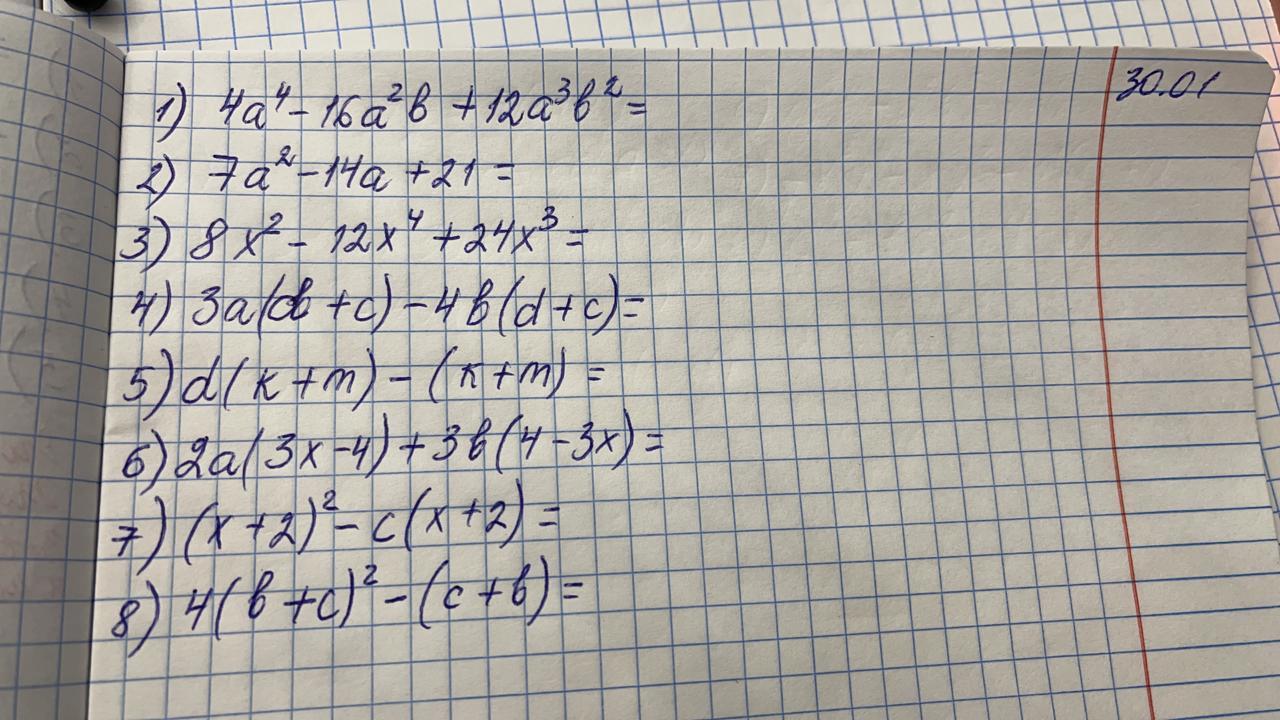 30.01
1) 4a⁴ - 16a²b + 12a³b² =
2) 7a² - 14a + 21 =
3) 8x² - 12x⁴ + 24x³ =
4) 3a(d + c) - 4b(d + c) =
5) d(к + m) - (к + m) =
6) 2a(3x - 4) + 3b(4 - 3x) =
7) (x + 2)² - c(x + 2) =
8) 4(b + c)² - (c + b) =